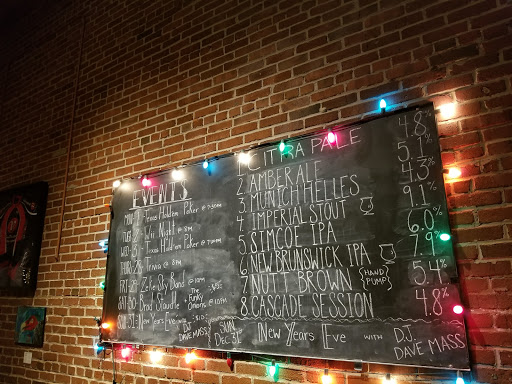 EVENTS
MON 25 Texas Hold'em Poker @ 7:30pm
TUES 26 Wii Night @ 8pm
WED 27 Texas Hold'em Poker @ 7:30pm
THURS 28 Trivia @ 8pm
FRI 29 Zeke Sky Band @ 10pm
SAT 30 Brad Staudle The Funky Dawgs @ 10pm
SUN 31 New Years Eve with
DJ DAVE MASS
1. CITRA PALE 4.8%
2. AMBER ALE 5.1%
3. MUNICH HELLES 4.3%
4. IMPERIAL STOUT 9.1%
5. SIMCOE IPA 6.0%
6. NEW BRUNSWICK IPA 7.9%
7. NUT BROWN {HAND PUMP} 5.4%
8. CASCADE SESSION 4.8%
SUN DEC 31st New Years Eve WITH D.J. DAVE MASS